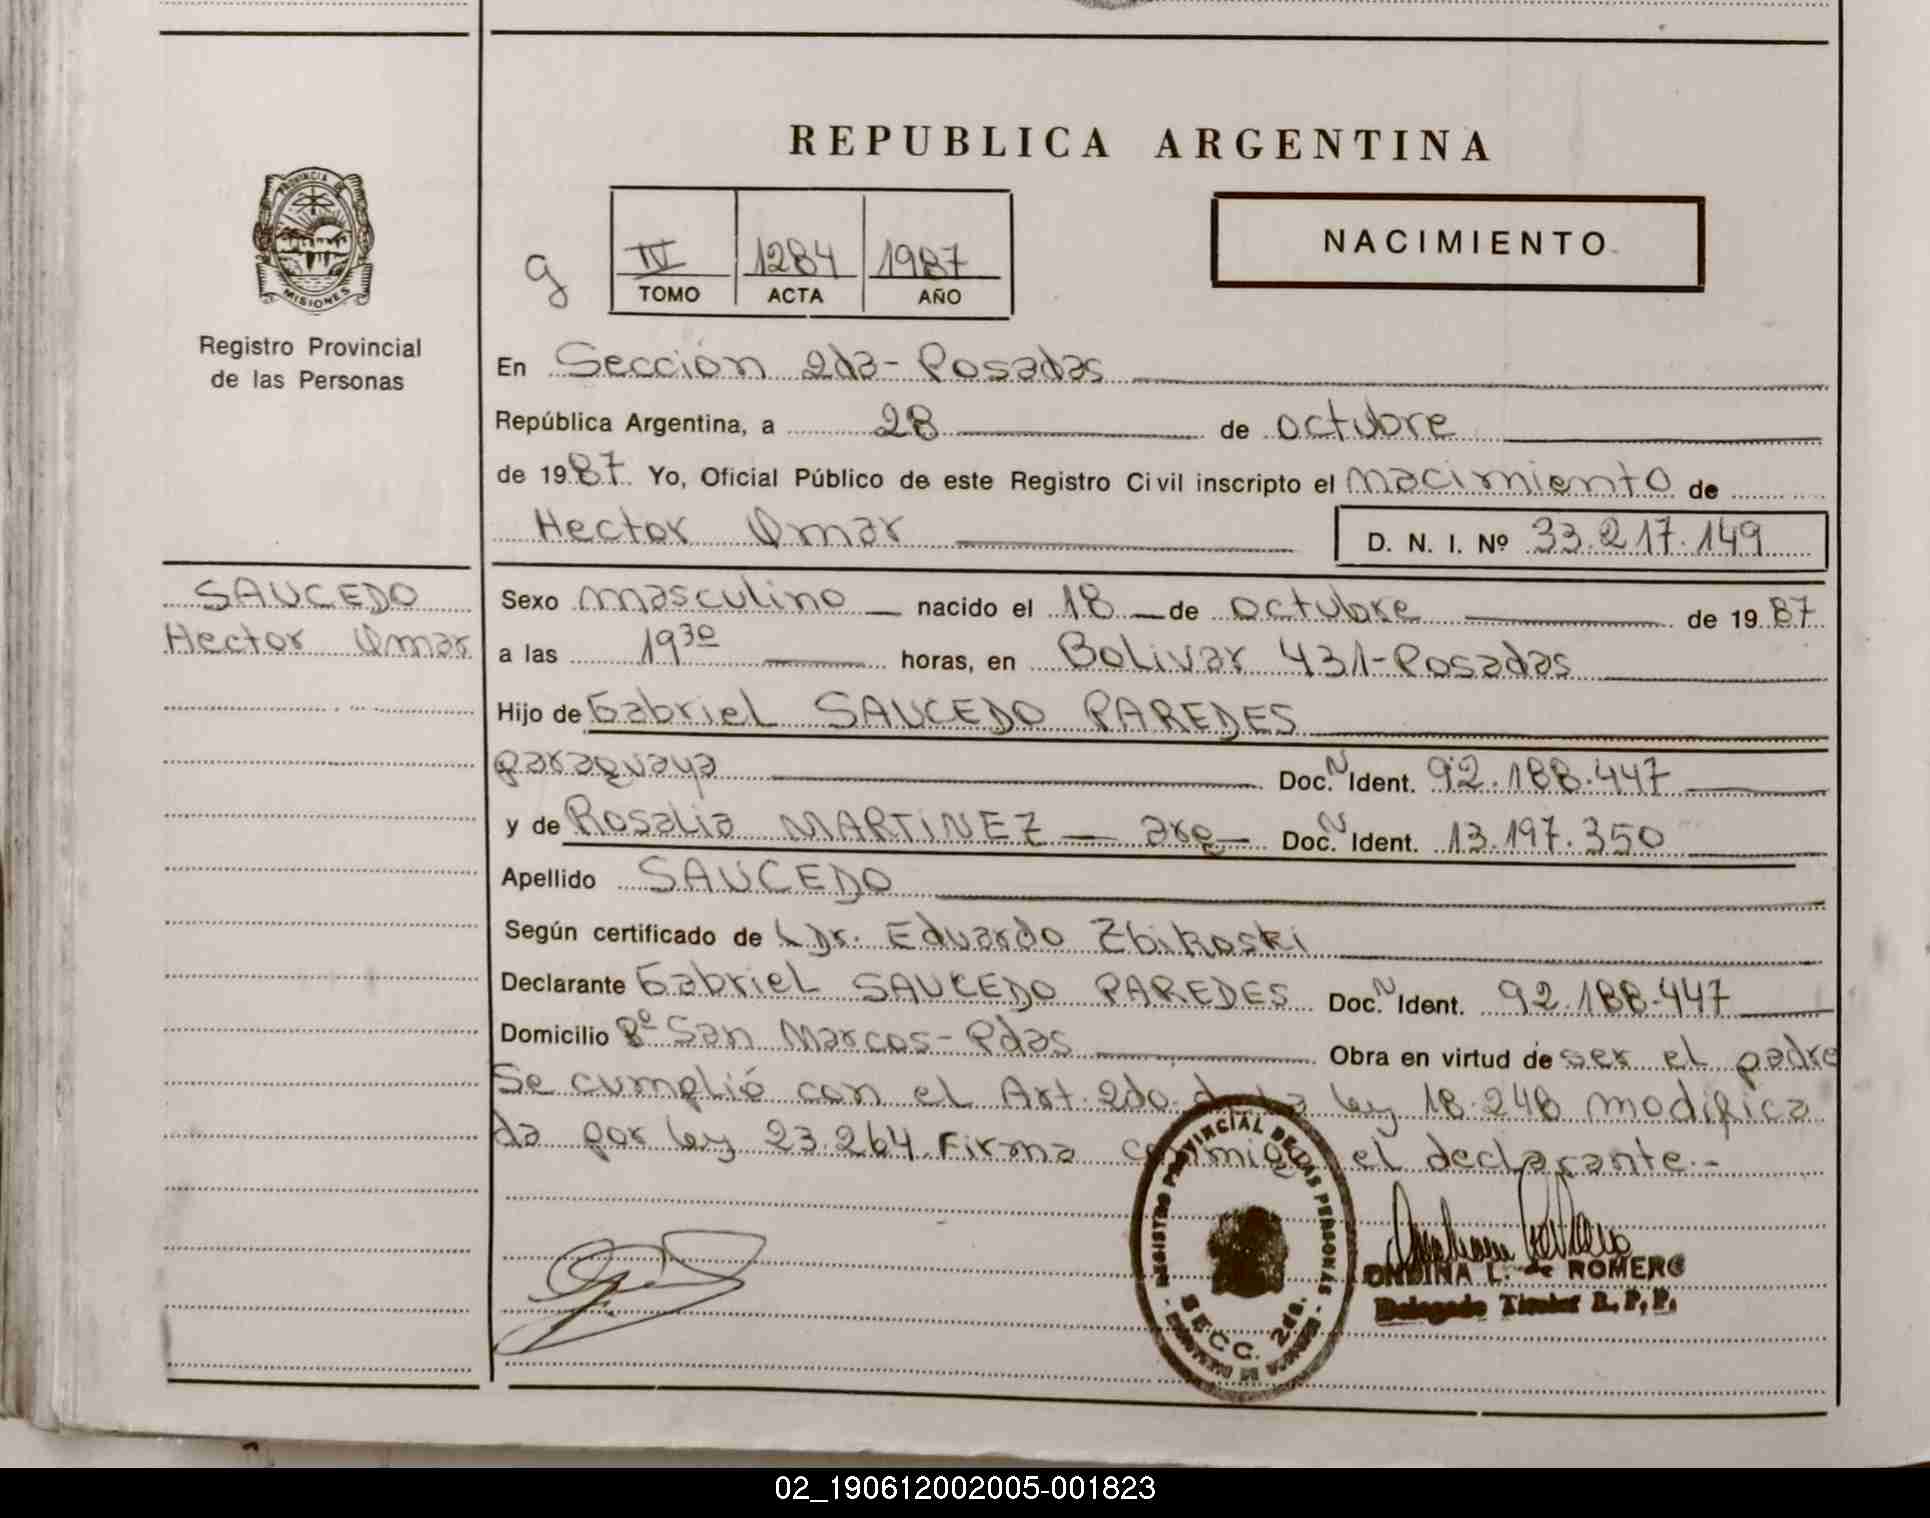 REPUBLICA ARGENTINA
PROVINCIA DE
MISIONES
Registro Provincial
de las Personas
g
IV 1284 1987
TOMO ACTA AÑO
NACIMIENTO
En Sección 2da- Posadas
República Argentina, a 28 de octubre
de 1987. Yo, Oficial Público de este Registro Civil inscripto el nacimiento de
Hector Omar D. N. I. Nº 33.217.149
SAUCEDO
Hector Omar
Sexo masculino nacido el 18 de octubre de 1987
a las 19³⁰ horas, en Bolivar 431-Posadas
Hijo de Gabriel SAUCEDO PAREDES
paraguaya Doc. N Ident. 92.188.447
y de Rosalia MARTINEZ - arg - Doc. N Ident. 13.197.350
Apellido SAUCEDO
Según certificado de Dr. Eduardo Zbikoski
Declarante Gabriel SAUCEDO PAREDES Doc. N Ident. 92.188.447
Domicilio Bº San Marcos- Pdas Obra en virtud de ser el padre
Se cumplió con el Art. 2do. de la ley 18.248 modifica
da por ley 23.264. Firma conmigo el declarante.-
REGISTRO PROVINCIAL DE LAS PERSONAS
SECC. 2da.
ONDINA L. de ROMERO
Delegado Titular R. P. P.
02_190612002005-001823